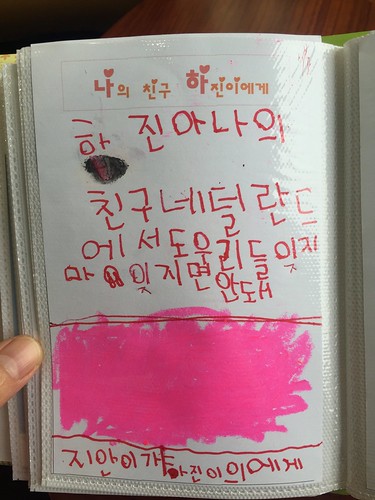 나의 친구 하진이에게
하 진아나의
친구네덜란드
에서도우리들잊지
마 잊지면안되
지안이가하진이의에게